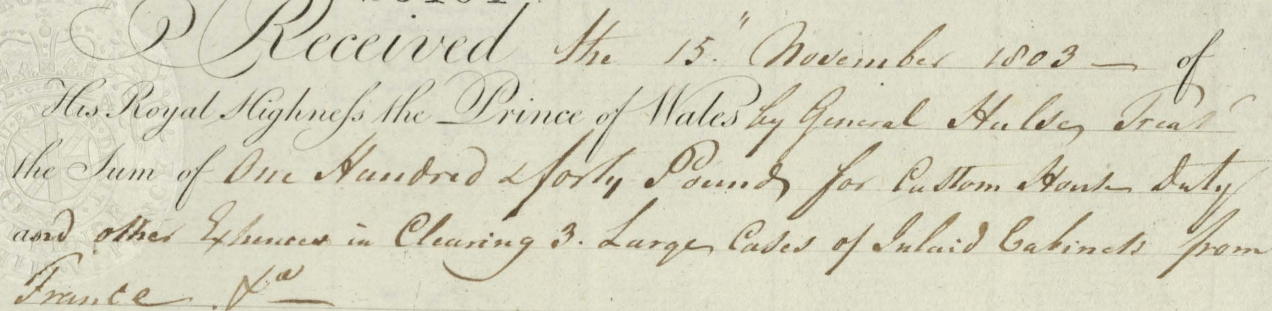 Received the 15." November 1803 — of
His Royal Highneſs the Prince of Wales by General Hulse, Treas.r
the Sum of One Hundred & forty Pounds for Custom House Duty
and other Expences in Clearing 3. Large Cases of Inlaid Cabinets from
France &ca —